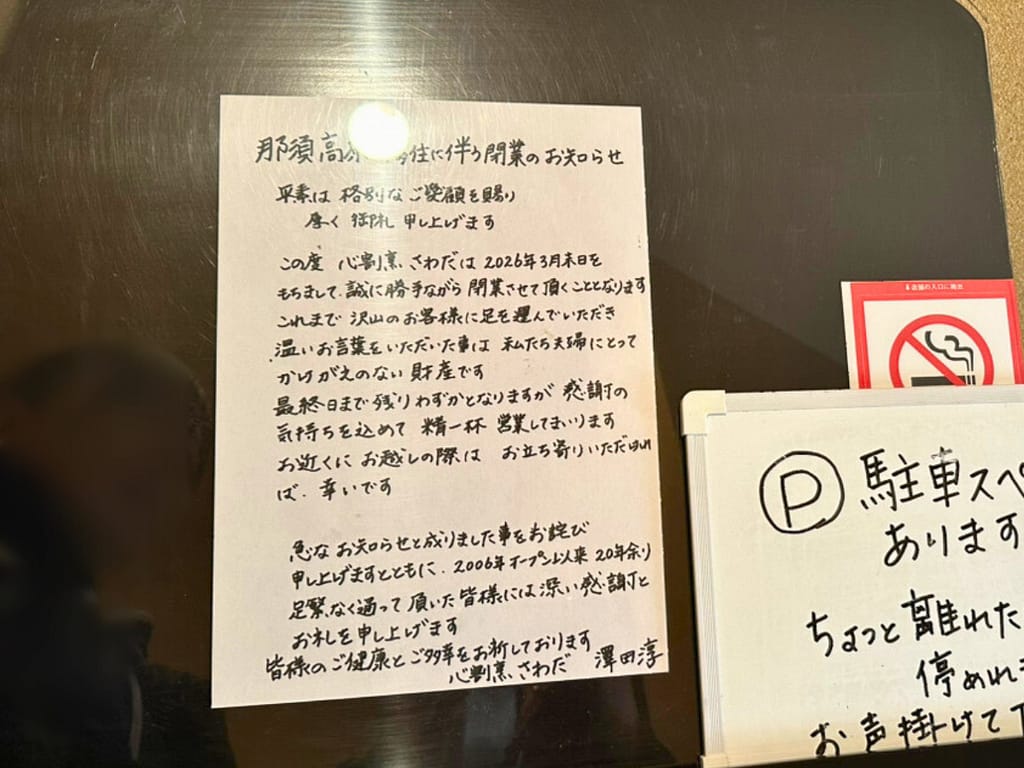 那須高原移住に伴う閉業のお知らせ
平素は 格別な ご愛顧を賜り
厚く 御礼 申し上げます
この度 心割烹 さわだは 2026年3月末日を
もちまして、誠に勝手ながら 閉業させて頂くこととなります
これまで 沢山のお客様に足を運んでいただき
温いお言葉をいただいた事は 私たち夫婦にとって
かけがえのない 財産です
最終日まで 残りわずかとなりますが 感謝の
気持ちを込めて 精一杯 営業してまいります
お近くに お越しの際は お立ち寄りいただけれ
ば、幸いです
急な お知らせと成りました事をお詫び
申し上げますとともに、2006年オープン以来 20年余り
足繁なく通って 頂いた 皆様には 深い感謝と
お礼を申し上げます
皆様のご健康とご多幸をお祈しております
心割烹 さわだ 澤田淳
店舗の入口に掲出
P 駐車スペ
あります
ちょっと離れた
停めれ
お声掛けて下